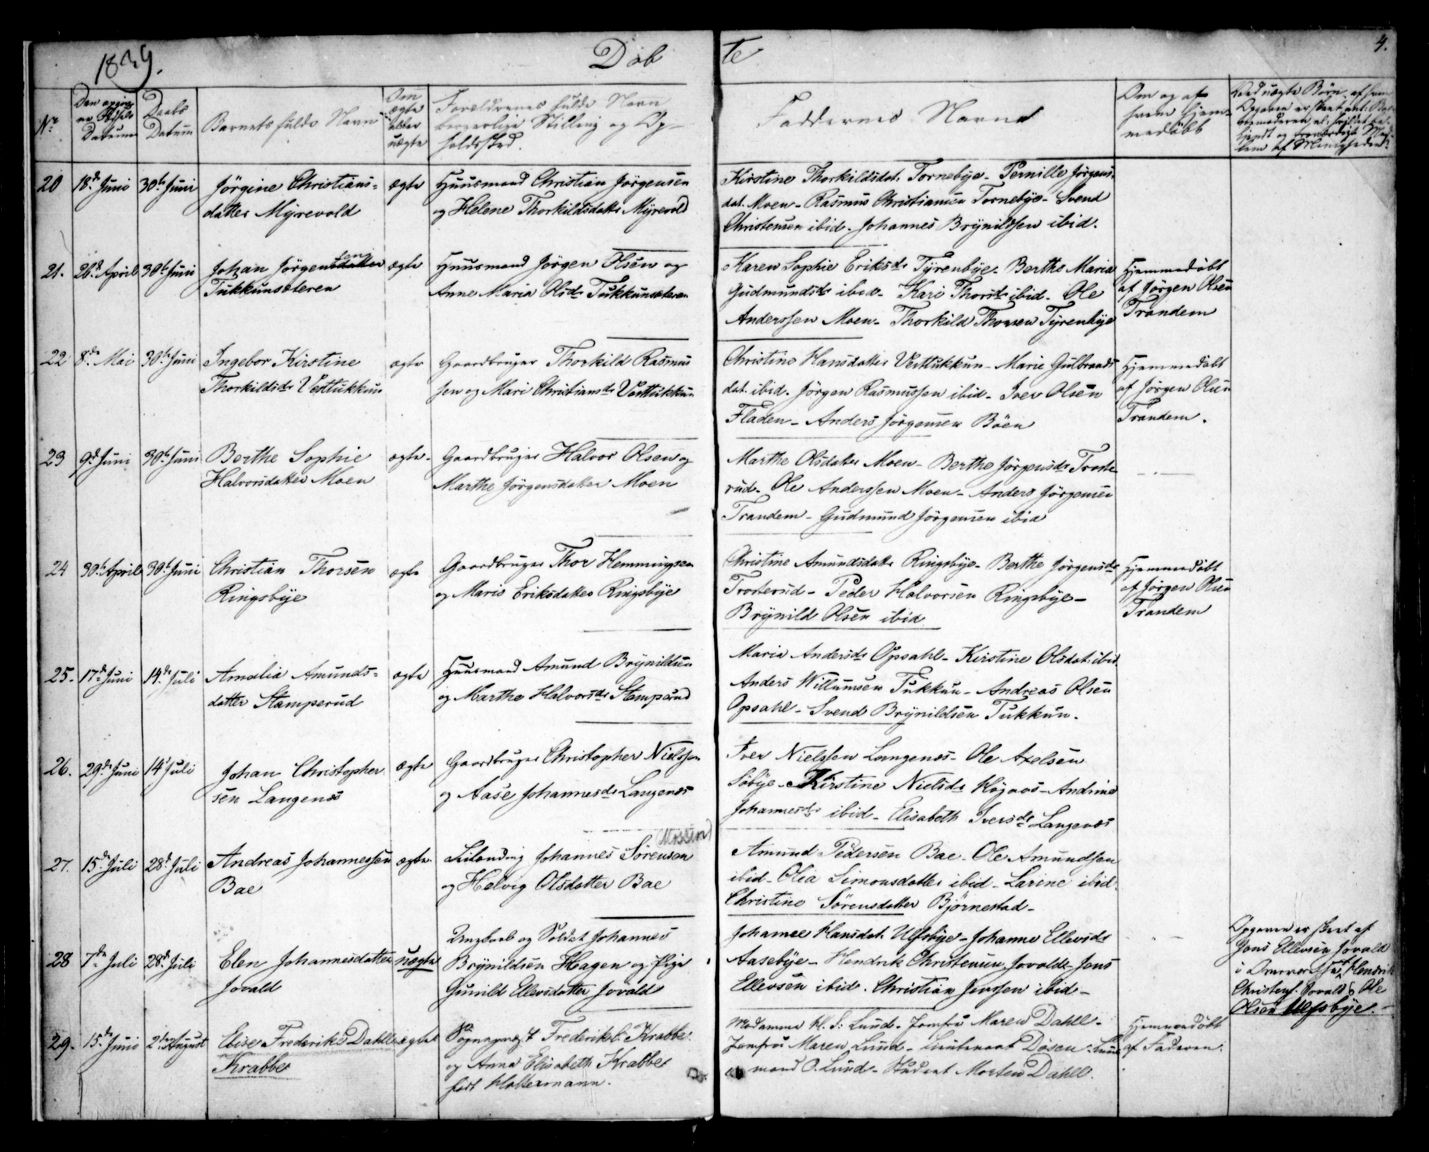 1839.
Døb
te
4.
Nr
Datum
Daabs
Datum
Barnets fulde Navn
Om
ægte
eller
uægte
Forældrenes fulde Navn
borgerlige Stilling og Op-
holdssted.
Faddernes Navne
Om og af
hvem hjem-
medøbt
20 18de Juni 30te Juni Jørgine Christians- ægte Huusmand Christian Jørgensen
datter Myrevold og Helene Thorkildsdatter Myrevold
Kirstine Thorkildsdat. Tornebye- Pernille Jørgens
dat. Moen- Rasmus Christiansen Tornebye- Svend
Christensen ibid. Johannes Brynildsen ibid.
21. 26de April 30te Juni Johan Jørgensen ægte Huusmand Jørgen Olsen og
Tukkunsæteren Anne Maria Olsdr Tukkunsæteren
Karen Sophie Eriksdr Tyrenbye. Berthe Maria
Gudmundsdr ibid. Kari Thorsdr ibid. Ole
Anderssen Moen- Thorkild Thorsen Tyrenbye
Hjemmedøbt
af Jørgen Olsen
Trandem
22 8de Mai 30te Juni Ingebor Kirstine ægte Gaardbruger Thorkild Rasmus
Thorkildsdr Vesttukkun sen og Mari Christiansdr Vesttukkun
Christine Hansdatter Vesttukkun- Marie Gulbrands
dat. ibid. Jørgen Rasmussen ibid- Iver Olsen
Fladen- Anders Jørgensen Böen
Hjemmedøbt
af Jørgen Olsen
Trandem.
23 9de Juni 30te Juni Berthe Sophie ægte. Gaardbruger Halvor Olsen og
Halvorsdatter Moen Marthe Jørgensdatter Moen
Marthe Olsdatter Moen- Berthe Jørgensdr Troste-
rud. Ole Anderssen Moen- Anders Jørgensen
Trandem- Gudmund Jørgensen ibid
24 30te April 30te Juni Christian Thorsen ægte Gaardbruger Thor Hemmingsen
Ringsbye og Marie Eriksdatter Ringsbye
Christine Amundsdat. Ringsbye- Berthe Jørgensdr
Trosterud- Peder Halvorsen Ringsbye-
Brynild Olsen ibid
Hjemmedøbt
af Jørgen Olsen
Trandem
25. 17de Juni 14de Juli Amalia Amunds- ægte Huusmand Amund Brynildsen
datter Stamperud og Marthe Halvorsdr Stamperud
Maria Andersdr Opsahl- Kirstine Olsdat. ibid
Anders Willumsen Tukkun- Andreas Olsen
Opsahl- Svend Brynildsen Tukkun.
26. 29de Juni 14 Juli Johan Christopher ægte Gaardbruger Christopher Nielsen
sen Langenæs og Aase Johannesdr Langenæs
Iver Nielssen Langenæs- Ole Axelsen
Søbye- Kirstine Nielsdr Høgaas- Andrine
Johannesdr ibid- Elisabeth Iversdr Langenæs
27. 15de Juli 28de Juli Andreas Johannessen ægte Johannes Sørensen
Bae og Helvig Olsdatter Bae
Amund Pedersen Bae. Ole Amundsen
ibid- Olea Simonsdatter ibid- Larine ibid.
Christine Sørensdatter Bjørnestad-
28 7de Juli 28de Juli Elen Johannesdatter uægte Ungkarl og Soldat Johannes
Jovald Brynildsen Hagen og Pige
Gunild Ellevsdatter Jovald
Johanne Hansdat. Ulfsbye- Johanne Ellevsdr
Aasebye- Hendrik Christensen Jovald- Jens
Ellevsen ibid. Christian Jensen ibid-
Opgaven er skeet af
Jens Ellevsen Jovald
Hendrik
Christens. Jovald & Ole
Olsen Ulfsbye.
29. 15de Juni 2de August Elise Frederikke Dahll ægte Sogneprest Frederik Krabbe
Krabbe og Anna Elisabeth Krabbe
født Kollermann.
Madamme H. S. Lund- Jomfru Maren Dahll-
Jomfru Maren Lund- Lieutenant Disen
mand O. Lund- Student Morten Dahll.
Hjemmedøbt
af Faderen